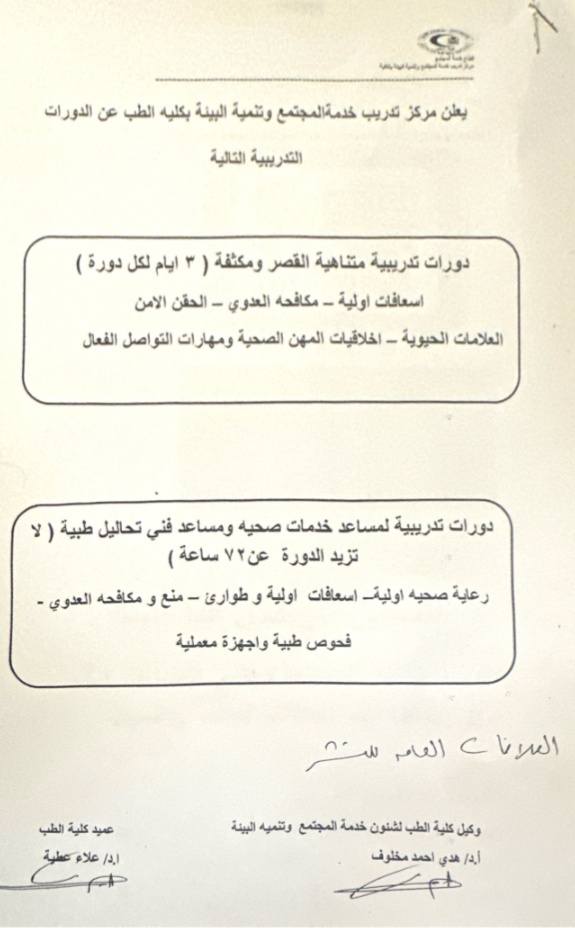 يعلن مركز تدريب خدمةالمجتمع وتنمية البيئة بكليه الطب عن الدورات
التدريبية التالية
دورات تدريبية متناهية القصر ومكثفة ( ٣ ايام لكل دورة )
اسعافات اولية – مكافحه العدوي – الحقن الامن
العلامات الحيوية – اخلاقيات المهن الصحية ومهارات التواصل الفعال
دورات تدريبية لمساعد خدمات صحيه ومساعد فني تحاليل طبية ( لا
تزيد الدورة عن٧٢ ساعة )
رعاية صحيه اولية– اسعافات اولية و طوارئ – منع و مكافحه العدوي -
فحوص طبية واجهزة معملية
العلاقات العامه للنشر
وكيل كلية الطب لشئون خدمة المجتمع وتنميه البيئة
عميد كلية الطب
أ.د/ هدي احمد مخلوف
ا.د/ علاء عطية